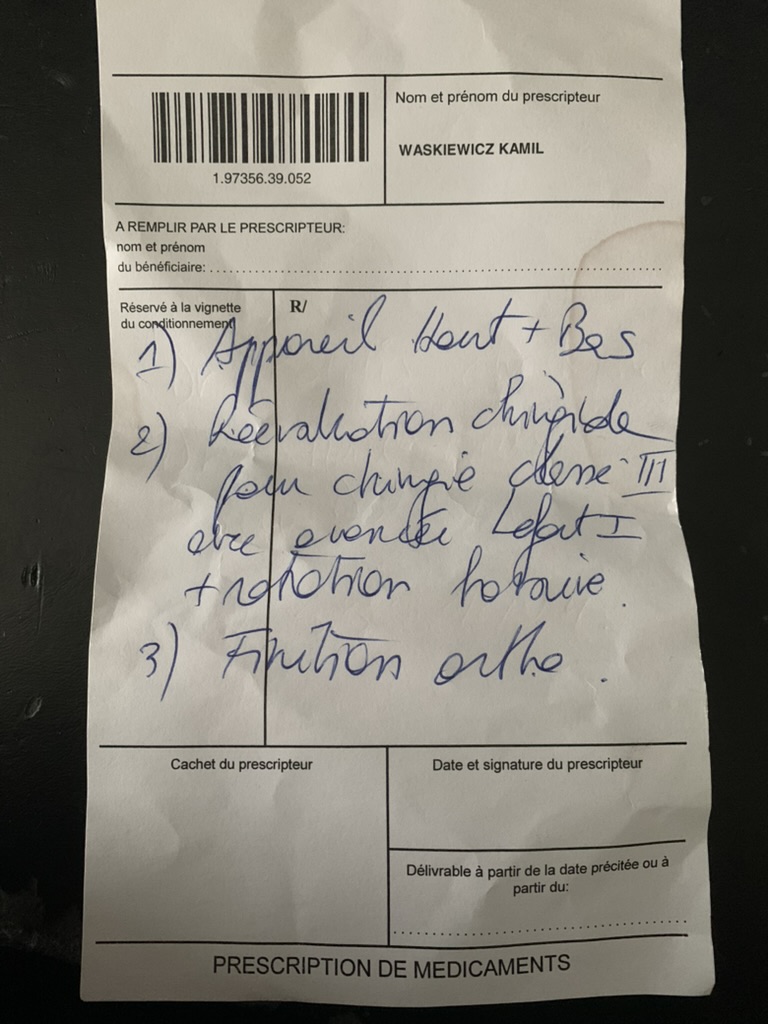 Nom et prénom du prescripteur
WASKIEWICZ KAMIL
1.97356.39.052
A REMPLIR PAR LE PRESCRIPTEUR:
nom et prénom
du bénéficiaire:
Réservé à la vignette
du conditionnement
R/
1) Appareil Haut + Bas
2) Réévaluation chirurgicale
pour chirurgie classe III
avec avancée Lefort I
+ rotation horaire.
3) Finition ortho.
Cachet du prescripteur
Date et signature du prescripteur
Délivrable à partir de la date précitée ou à
partir du:
PRESCRIPTION DE MEDICAMENTS